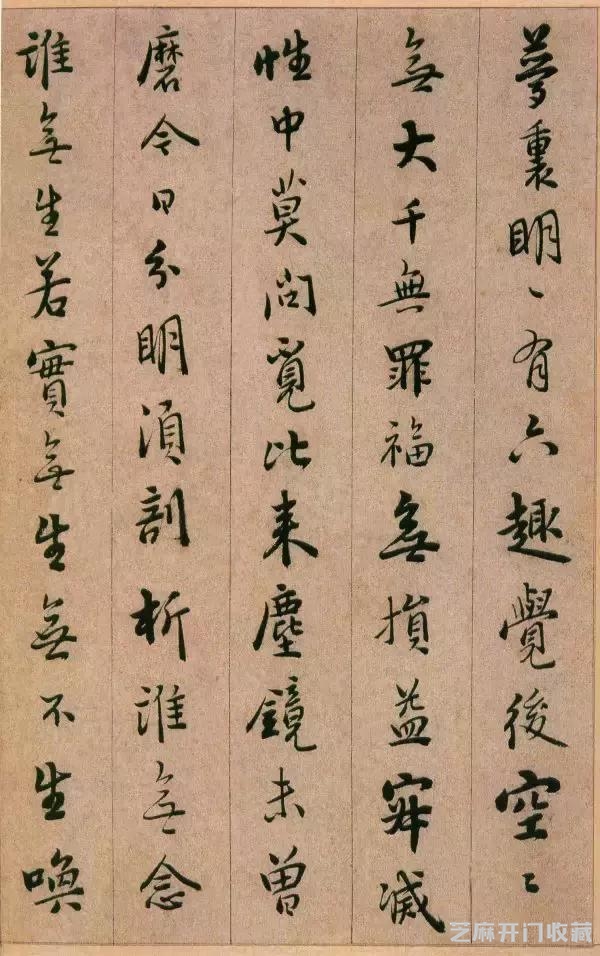 夢裏明〻有六趣覺後空〻
無大千無罪福無損益寂滅
性中莫問覓比来塵鏡未曽
磨今日分明湏剖析誰無念
誰無生若實無生無不生喚
芝麻开门收藏